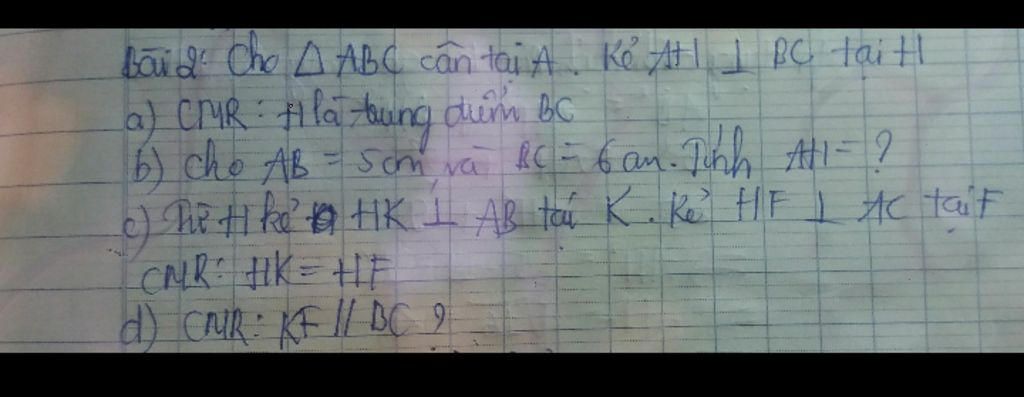 Bài 2: Cho △ ABC cân tại A. Kẻ AH ⊥ BC tại H
a) CMR: H là trung điểm BC
b) Cho AB = 5cm và BC = 6cm. Tính AH = ?
c) Từ H kẻ HK ⊥ AB tại K. Kẻ HF ⊥ AC tại F
CMR: HK = HF
d) CMR: KF // BC ?